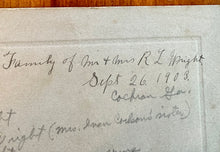 Family of Mr & Mrs R L Wright
Sept 26, 1908
Cochran Ga.
Wright (Mrs. Cochran's sister)